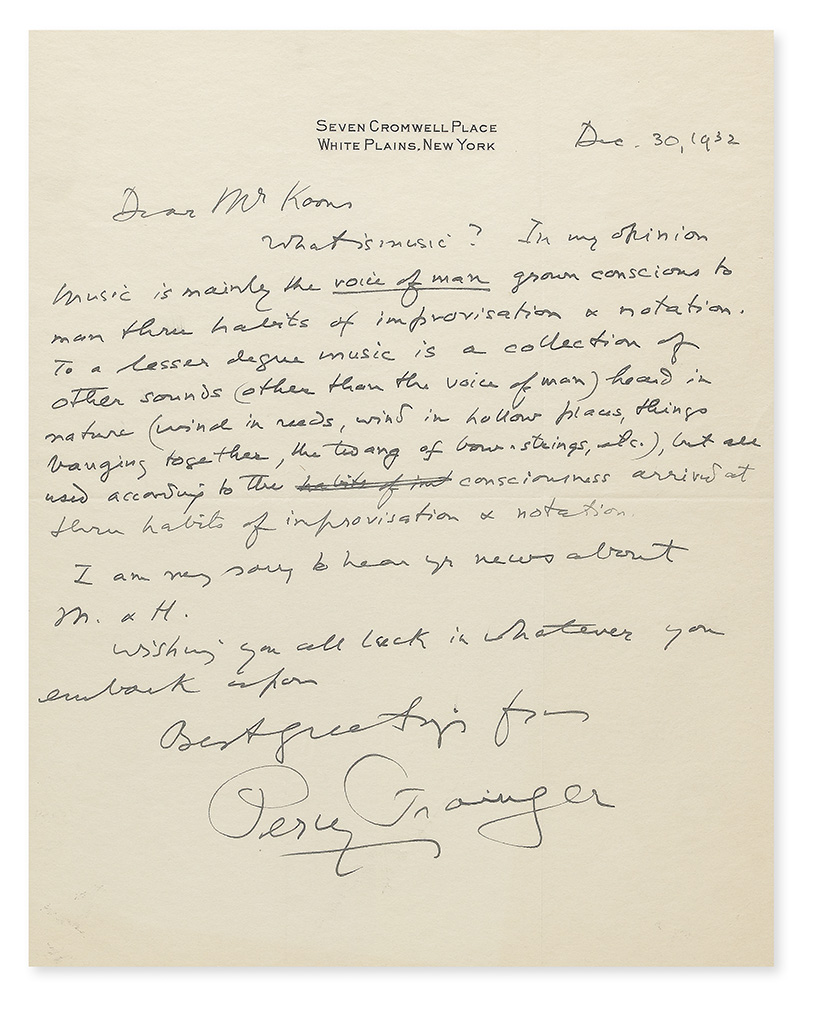 SEVEN CROMWELL PLACE
WHITE PLAINS, NEW YORK
Dec. 30, 1932
Dear Mr Koons
What is music? In my opinion
Music is mainly the voice of man grown conscious to
man thru habits of improvisation & notation.
To a lesser degree music is a collection of
other sounds (other than the voice of man) heard in
nature (wind in reeds, wind in hollow places, things
banging together, the twang of bow-strings, etc.), but all
used according to the habits of im consciousness arrived at
thru habits of improvisation & notation.
I am very sorry to hear yr news about
M. & H.
Wishing you all luck in whatever you
embark upon
Best greetings from
Percy Grainger